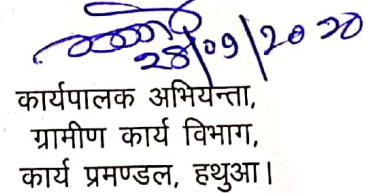 28/09/2020
कार्यपालक अभियन्ता,
ग्रामीण कार्य विभाग,
कार्य प्रमण्डल, हथुआ।